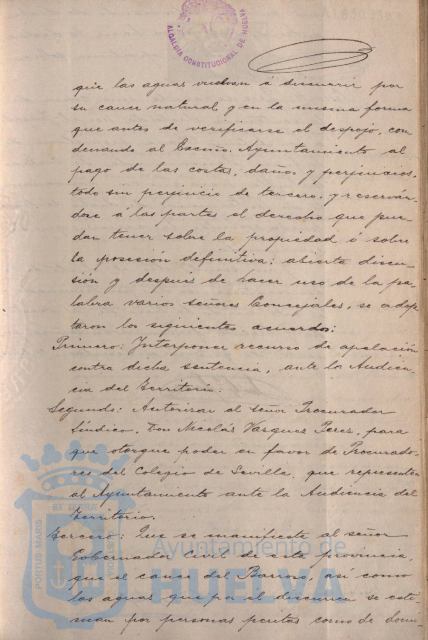 ALCALDIA CONSTITUCIONAL DE HUELVA
que las aguas vuelvan á discurrir por
su cauce natural y en la misma forma
que antes de verificarse el despojo, con
denando al Excmo. Ayuntamiento al
pago de las costas, daños y perjuicios,
todo sin perjuicio de tercero, y reserván
dose á las partes el derecho que pue
dan tener sobre la propiedad ó sobre
la posesión definitiva; abierta discu-
sión y después de hacer uso de la pa-
labra varios señores Concejales, se adop
taron los siguientes acuerdos:
Primero: Interponer recurso de apelación
contra dicha sentencia, ante la Audien
cia del Territorio.
Segundo: Autorizar al señor Procurador
Síndico, Don Nicolás Vazquez Perez, para
que otorgue poder en favor de Procurado-
res del Colegio de Sevilla, que representen
al Ayuntamiento ante la Audiencia del
Territorio.
Tercero: Que se manifieste al señor
Gobernador civil de esta provincia,
que el cauce del Barrio, así como
las aguas que por él discurren se esti-
man por personas peritas como de domi-
PORTUS MARIS
Ayuntamiento de
HUELVA